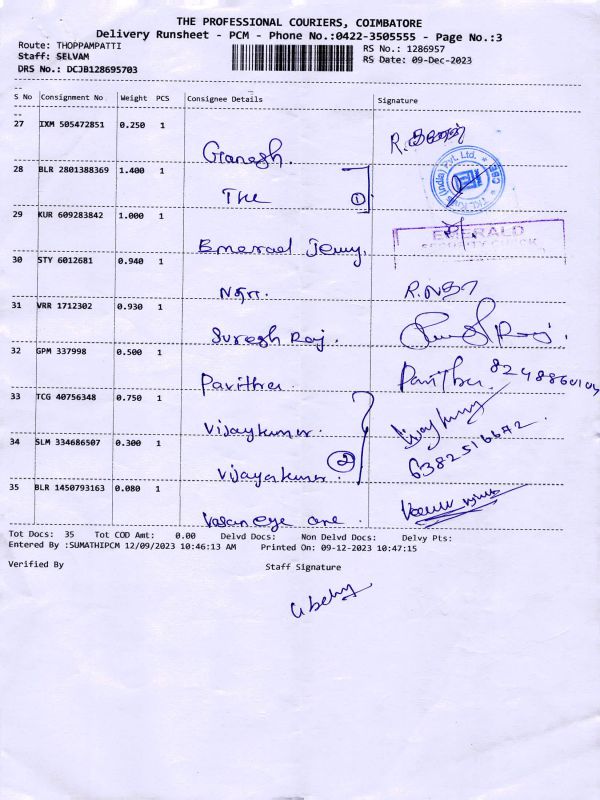 THE PROFESSIONAL COURIERS, COIMBATORE
Delivery Runsheet - PCM - Phone No.:0422-3505555 - Page No.:3
Route: THOPPAMPATTI RS No.: 1286957
Staff: SELVAM RS Date: 09-Dec-2023
DRS No.: DCJB128695703
S No Consignment No Weight PCS Consignee Details Signature
27 IXM 505472851 0.250 1
Ganesh. R.
28 BLR 2801388369 1.400 1
The 1
29 KUR 609283842 1.000 1
EMERALD
SECURITY CHECK
Emerael Jewy.
30 STY 6012681 0.940 1
R.
31 VRR 1712302 0.930 1
Suresh Raj.
32 GPM 337998 0.500 1
Pavithra Pavithra.
33 TCG 40756348 0.750 1
Vijaykumar. Vijaykumar
34 SLM 334686507 0.300 1
Vijayakumar. 2
35 BLR 1450793163 0.080 1
Vasan eye care.
Tot Docs: 35 Tot COD Amt: 0.00 Delvd Docs: Non Delvd Docs: Delvy Pts:
Entered By :SUMATHIPCM 12/09/2023 10:46:13 AM Printed On: 09-12-2023 10:47:15
Verified By Staff Signature